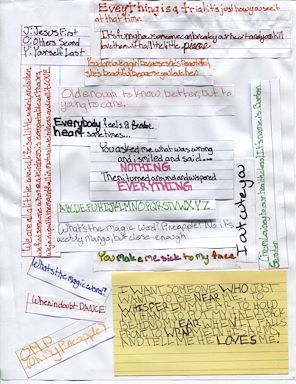 Everything is a trial it's just how you see it
at that time
J: Jesus First
O: Others Second
Y: Yourself Last
It's funny how someone can break your heart and you still
love them with all the little pieces
You don't love a girl because she's beautiful,
She's beautiful because you love her!
Old enough to know better, but to
young to care.
Everybody feels a Broken
heart sometimes...
You asked me what was wrong
and i smiled and said...
NOTHING
Then i turned around and whispered
EVERYTHING
ABCDEFGHIJKLMNOPQRSTUVWXYZ
What's the magic word? Pineapple! No it's
actually mango, but close enough
You make me sick to my face
I ate uteya
What's the magic word?
When in doubt DANCE
OMP
(Oh My Pineapple)
We are all a little weird, life's a little weird, and when
we find someone whose weirdness is compatible with ours,
we join up with them and fall in mutual weirdness and call it LOVE.
I WANT SOMEONE WHO JUST
WANTS TO BE NEAR ME. TO
WHISPER
BEHIND MY EAR WHEN IT FALLS
AND TELL ME HE LOVES ME.